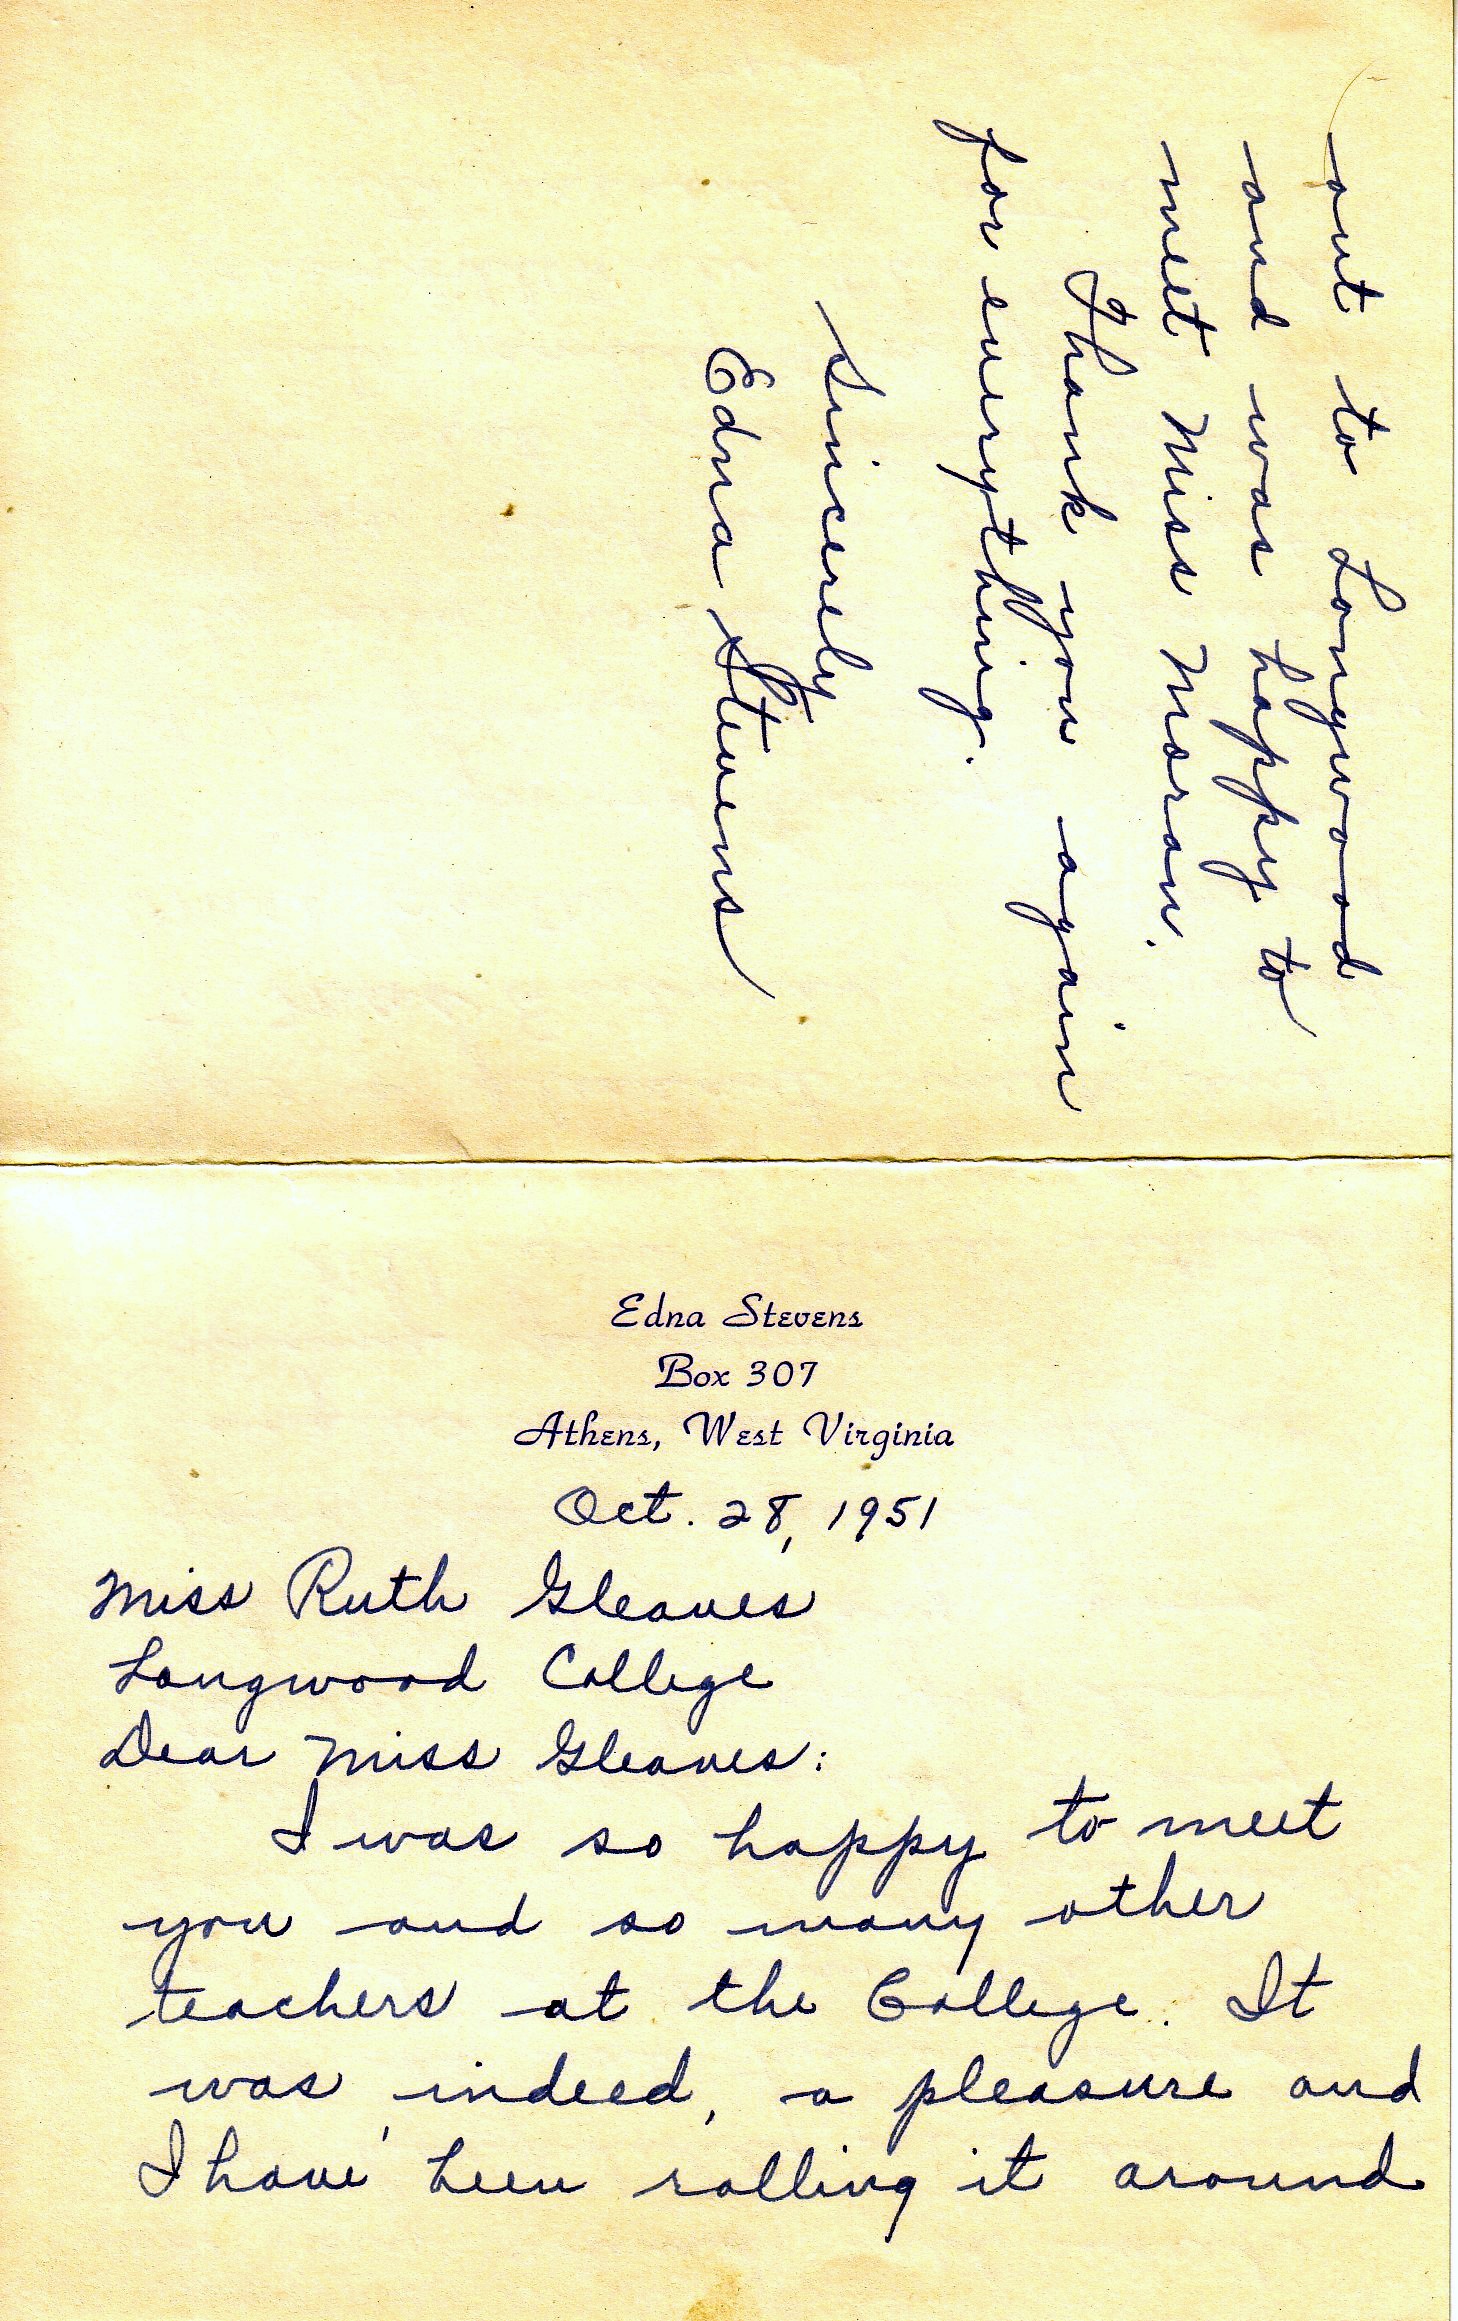 Edna Stevens
Box 307
Athens, West Virginia
Oct. 28, 1951
Miss Ruth Gleaves
Longwood College
Dear Miss Gleaves:
I was so happy to meet
you and so many other
teachers at the College. It
was, indeed, a pleasure and
I have been rolling it around
out to Longwood
and was happy to
meet Miss Moran.
Thank you again
for everything.
Sincerely
Edna Stevens